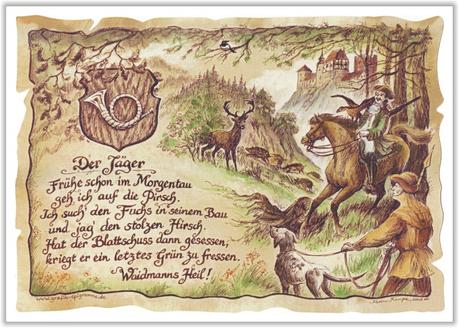 Der Jäger
Frühe schon im Morgentau
geh ich auf die Pirsch.
Ich such' den Fuchs in seinem Bau
und jag' den stolzen Hirsch.
Hat der Blattschuss dann gesessen,
kriegt er ein letztes Grün zu fressen.
Waidmanns Heil!